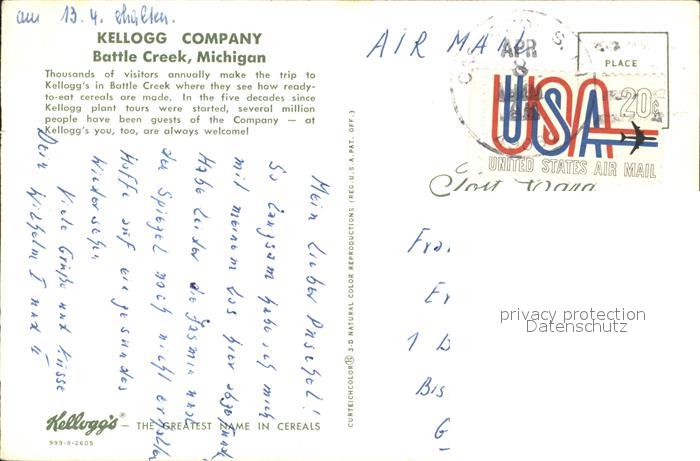 am 13.4. erhalten.
KELLOGG COMPANY
Battle Creek, Michigan
Thousands of visitors annually make the trip to
Kellogg's in Battle Creek where they see how ready-
to-eat cereals are made. In the five decades since
Kellogg plant tours were started, several million
people have been guests of the Company — at
Kellogg's you, too, are always welcome!
Mein lieber
So langsam habe ich mich
mit meinem Los hier abgefunden
Habe leider die Jasmin und
der Spiegel noch nicht erhalten
Hoffe auf ein gesundes
Wiedersehen
Viele Grüße und Küsse
Dein Wilhelm I und II
Kellogg's® — THE GREATEST NAME IN CEREALS
999-9-2605
CURTEICHCOLOR® 3-D NATURAL COLOR REPRODUCTIONS (REG. U.S.A. PAT. OFF.)
AIR MAIL
APR
8
PLACE
USA 20c
UNITED STATES AIR MAIL
Post Card
Fra.
Er
1 B
Bis
G
privacy protection
Datenschutz